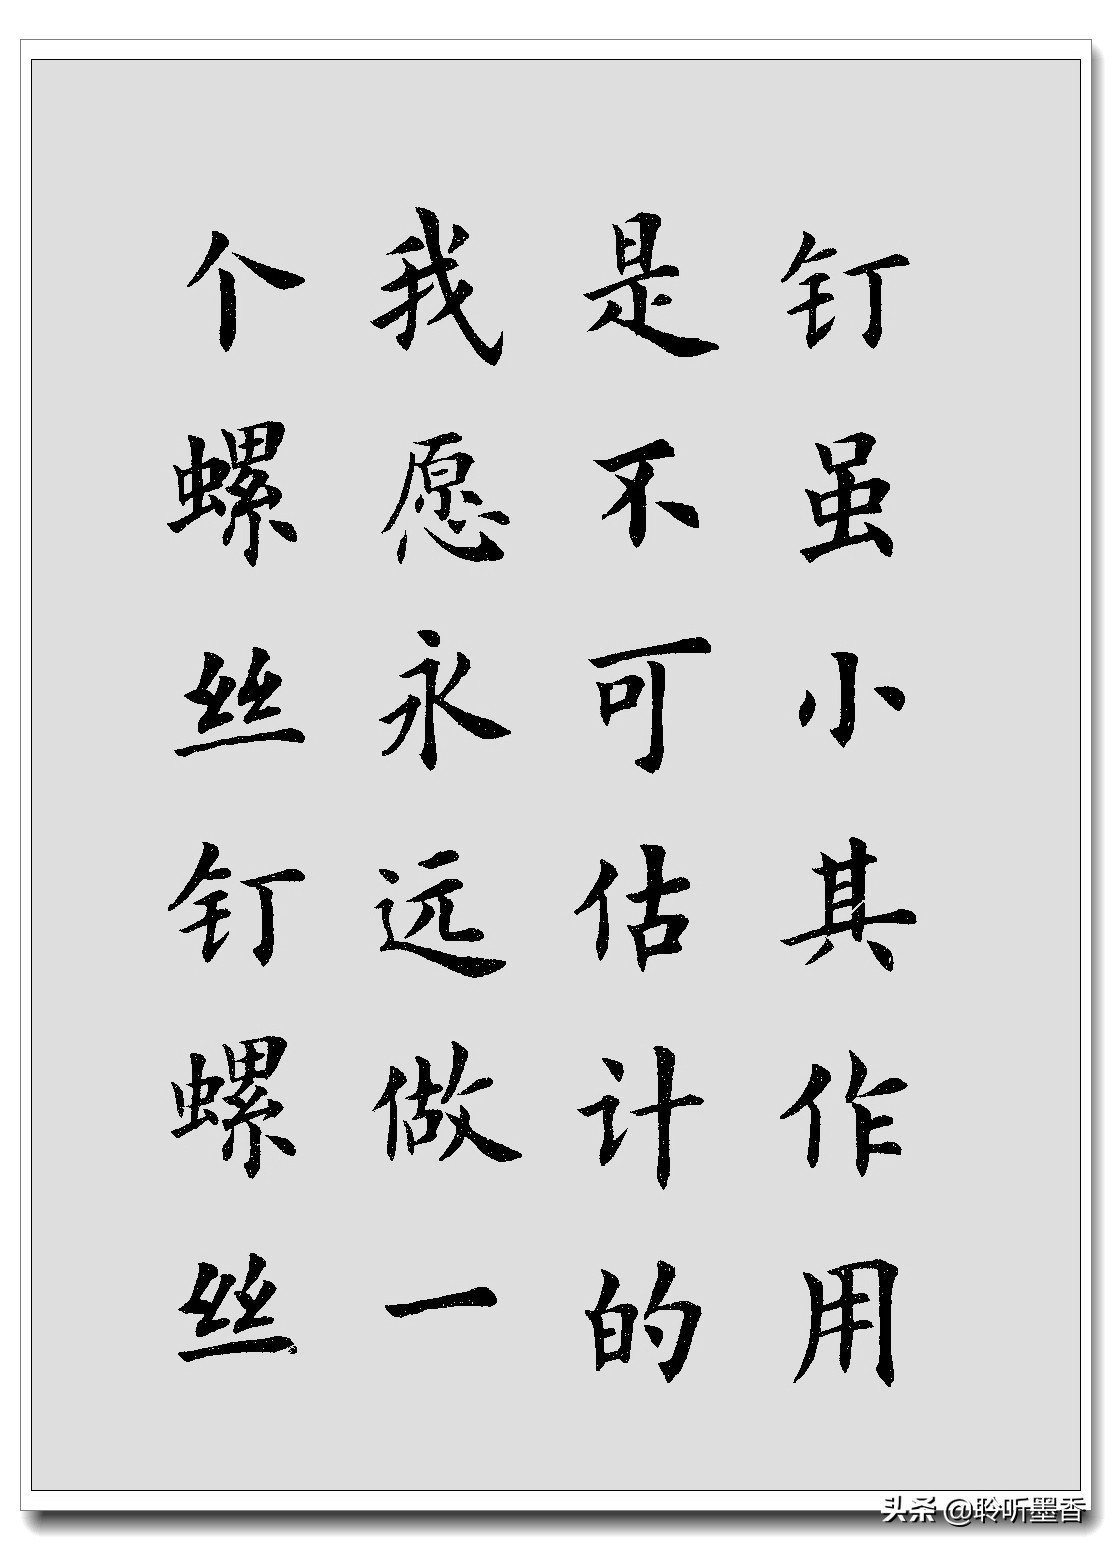 钉虽小其作用
是不可估计的
我愿永远做一
个螺丝钉螺丝
头条 @聆听墨香